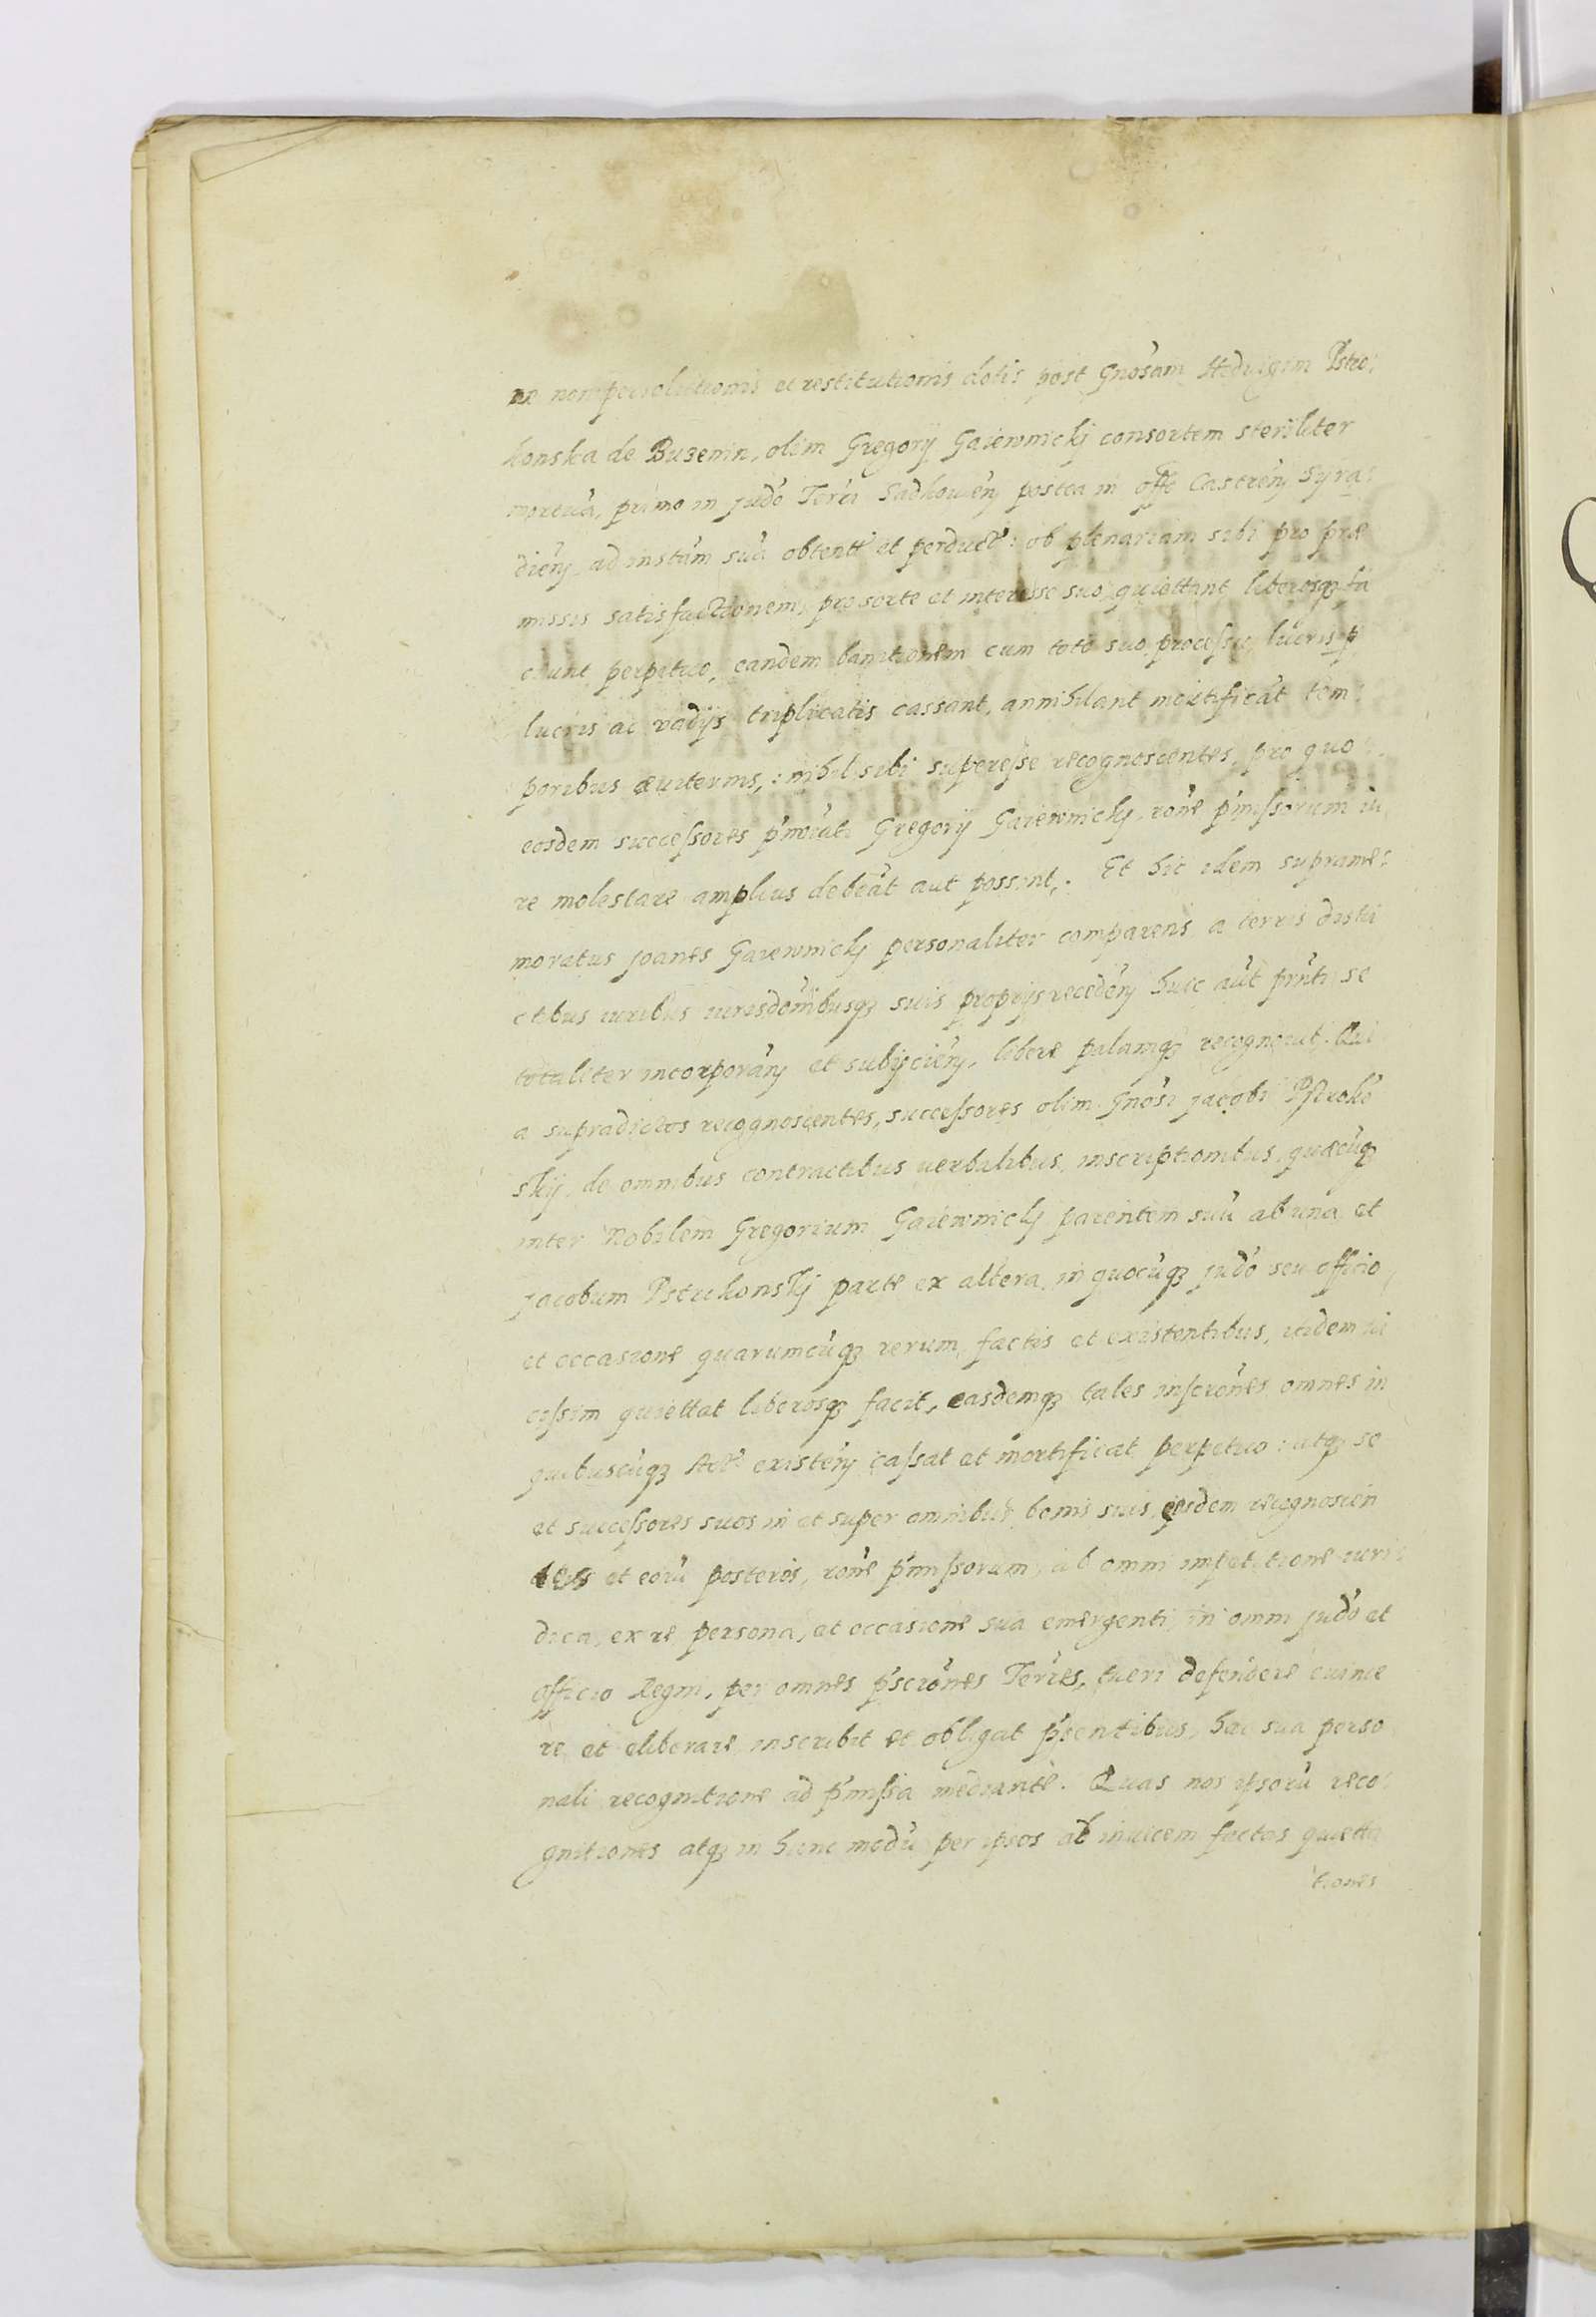 ne nonpersolutionis et restitutionis dotis post Gnosam Hedvigem Pstro:
konska de Buzenin, olim Gregorij Gaiewnickj consortem steriliter
mortuã, primo in Judõ Terri Sadkowień postea in offõ Castreñ Syra:
dieñ ad instãm suã obtentẽ et perductẽ: ob plenariam sibi pro præ
missis satisfactionem, pro sorte et interesse suo quiettant liberosqȝ fa
ciunt perpetuo, eandem banitionem cum toto suo processu, lucris p
lucris ac vadijs triplicatis cassant, annihilant mortificãt tem:
poribus æviternis,: nihil sibi superesse recognoscentes, pro quo
eosdem successores p̃morati Gregorij Gaiewnickj, rõne p̃missorum iu
re molestare amplius debeãt aut possint,. Et hic idem suprame:
moratus Joanes Gaiewnickj personaliter comparens a terris distri
ctibus iuribus iurisdõnibusqȝ suis proprijs recedeñ huic aũt prñti se
totaliter incorporañ et subijcieñ, libere palamqȝ recognovit. Quia
a supradictos recognoscentes, successores olim Gnosi Jacobi Pstrokõ
skij, de omnibus contractibus verbalibus, inscriptionibus, quæcũqȝ
inter Nobilem Gregorium Gaiewnickj parentem suũ ab una et
Jacobum Pstrokonskj parte ex altera, in quocũqȝ judõ seu officio
et occasione quarumcũqȝ rerum, factis et existentibus, itidem vi
cissim quiettat liberosqȝ facit, easdemqȝ tales inscrõnes omnes in
quibuscũqȝ Actẽ existeñ cassat et mortificat perpetuo: atqȝ se
et successores suos in et super omnibus bonis suis, eisdem recognoscen
tes et eorũ posteris, rõne p̃missorum, ab omni impetitione iuri
dica, ex re, persona, et occasione sua emergenti, in omni judõ et
officio Regni, per omnes p̃scrõnes Terres, tueri defendere evince
re et eliberare inscribit et obligat p̃sentibus, hac sua perso
nali recognitione ad p̃missa mediante. Quas nos ipsorũ reco:
gnitiones atqȝ in hunc modũ per ipsos ab invicem factas quietta
tiones